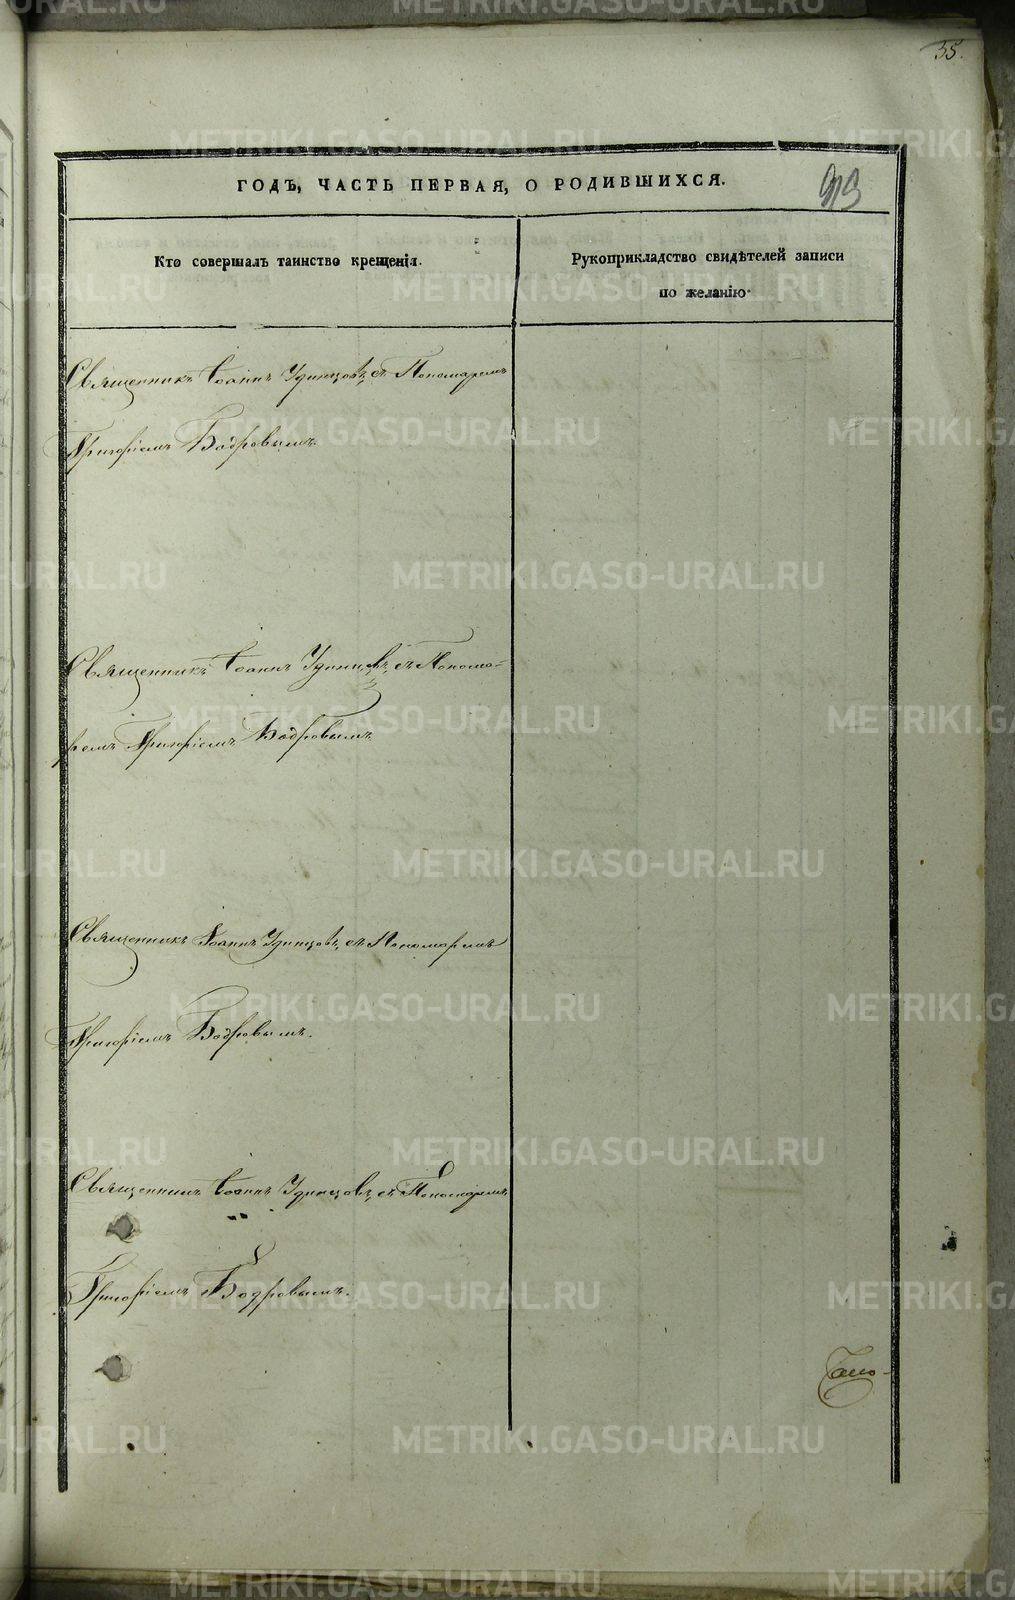 35.
ГОДЪ, ЧАСТЬ ПЕРВАЯ, О РОДИВШИХСЯ.
Кто совершалъ таинство крещенія.
Рукоприкладство свидѣтелей записи
по желанію.
Священникъ Іоаннъ Удинцовъ, съ Пономаремъ
Григоріемъ Бодровымъ.
Священникъ Іоаннъ Удинцовъ, съ Понома-
ремъ Григоріемъ Бодровымъ.
Священникъ Іоаннъ Удинцовъ, съ Пономаремъ
Григоріемъ Бодровымъ.
Священникъ Іоаннъ Удинцовъ, съ Пономаремъ
Григоріемъ Бодровымъ.
METRIKI.GASO-URAL.RU